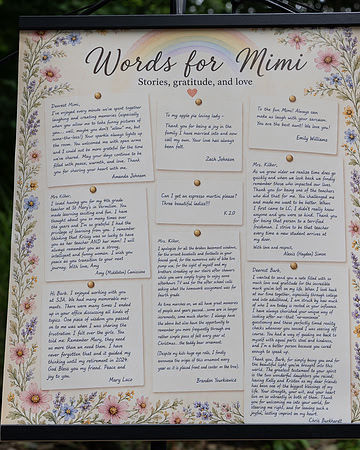 Words for Mimi
Stories, gratitude, and love
Dearest Mimi,
I've enjoyed every minute we've spent together
laughing and creating memories (especially
when you allow me to take funny pictures of
you-
Your sparkle always lights up
the room. You welcomed me with open arms
and I could not be more grateful for the time
we've shared. May your days continue to be
filled with peace, warmth, and love. Thank
you for sharing your heart with me.
Amanda Johnson
To my apple pie loving lady-
Thank you for being a joy in the
family I have married into and now
call my own. Your love has always
been felt.
Zach Johnson
To the fun Mimi! Always can
make us laugh with your sarcasm.
You are the best aunt! We love you!
Emily Williams
Mrs. Kilker,
I loved having you for my 4th grade
teacher at St. Mary's in Vermilion. You
made learning exciting and fun. I have
thought about you so many times over
the years and I'm so grateful I had the
privilege of learning from you. I remember
thinking that Krissy was so lucky to have
you as her teacher AND her mom! I will
always remember you as a strong,
intelligent and funny woman. I wish you
peace as you transition to your next
journey. With love, Amy
Amy (Maddalena) Comissiong
Can I get an espresso martini please?
Three beautiful ladies!!!
K 2.0
Mrs. Kilker,
As we grow older we realize time does go
quickly and when we look back we fondly
remember those who impacted our lives.
Thank you for being one of the teachers
who did that for me. You challenged me
and made me want to be better. When
I first came to LC, I didn't really know
anyone and you were so kind. Thank you
for being that person to a terrified
freshman. I strive to be that teacher
every time a new student arrives at
my door.
With love and respect,
Alexis (Naypher) Simon
Hi Barb, I enjoyed working with you
at SJA. We had many memorable
moments. There were many times I ended
up in your office discussing all kinds of
topics. One piece of wisdom you passed
on to me was when I was sharing the
frustration I felt over the girls. You
told me: Remember Mary, they need
us more than we need them. I have
never forgotten that and it guided my
thinking until my retirement in 2024.
God Bless you my friend. Peace and
joy to you.
Mary Loco
Mrs. Kilker,
I apologize for all the broken basement windows,
for the errant baseballs and footballs in your
flower garden, for the
you
for the sight of me and my
brothers streaking up our stairs after showers
while you were simply trying to enjoy some
afternoon TV and for the after school calls
asking what the homework assignment was for
fourth grade.
As time marches on, we all have great memories
of people and years passed. Some are in large
movements, some much shorter. I always have
the above but also have the opportunity to
remember you more frequently through one
rather simple piece of foil every year at
Christmas...the teddy bear ornament.
(Despite my kids huge age now, I fondly
announce the origin of this ornament every
year as it is placed front and center on the tree).
Brandon Yourkiewicz
Dearest Barb,
I wanted to send you a note filled with so
much love and gratitude for the incredible
mark you've left on my life. When I look back
at our time together, especially through college
and into adulthood, I am struck by how much
of who I am today is rooted in your influence.
I have always cherished your unique way of
looking after me—that "no-nonsense"
questioning and those perfectly timed reality
checks whenever you sensed I was veering off
course. You taught me the value of surrounding
myself with equal parts steel and kindness,
and I'm a better person because you cared
enough to speak up.
Thank you, Barb, for simply being you and for
the beautiful light you've brought into this
world. The greatest testament to your spirit
is the two wonderful daughters you raised;
having Kelly and Kristen as my dear friends
has been one of the biggest blessings of my
life. Your strength, your wit, and your heart
live on so vibrantly in both of them. Thank
you for welcoming me into your world, for
steering me right, and for leaving such a
joyful, lasting imprint on my heart.
Chris Burkhardt